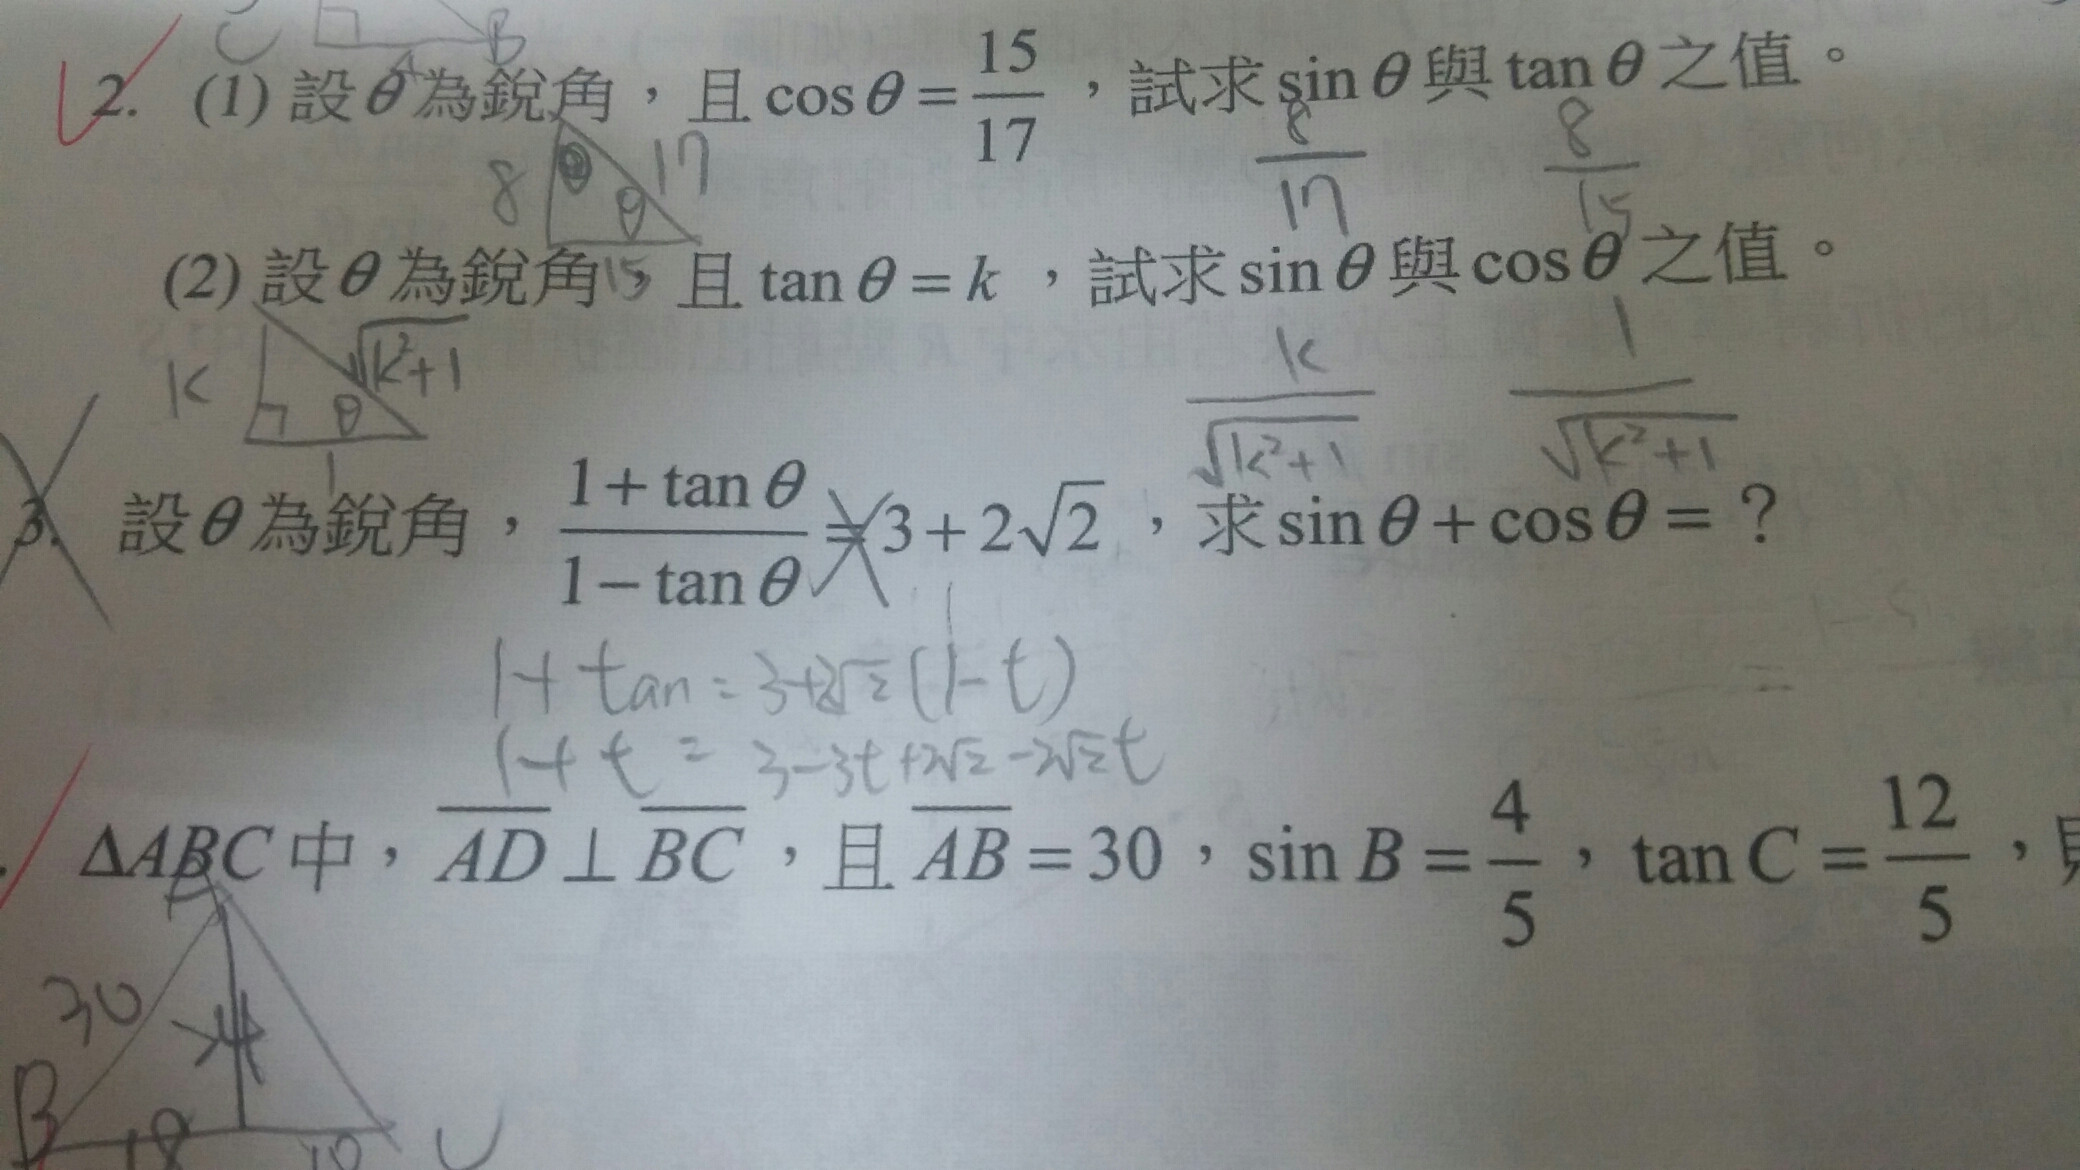 C B
2. (1) 設θ為銳角，且 cos θ = 15/17 ，試求 sin θ 與 tan θ 之值。
8 17 θ 15
8/17 8/15
(2) 設θ為銳角，且 tan θ = k ，試求 sin θ 與 cos θ 之值。
k √(k²+1) θ 1
k/√(k²+1) 1/√(k²+1)
3. 設θ為銳角，(1 + tan θ)/(1 − tan θ) = 3 + 2√2 ，求 sin θ + cos θ = ？
1+tan = 3+2√2 (1-t)
1+t = 3-3t+2√2-2√2t
ΔABC 中，AD ⊥ BC ，且 AB = 30 ，sin B = 4/5 ，tan C = 12/5 ，
A
30 24
B 18 10 C